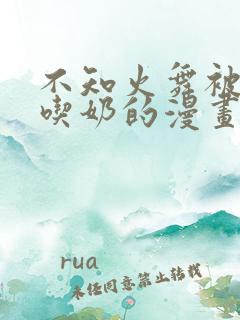 不知火舞被
喫奶的漫畫
rua
未经同意禁止转载